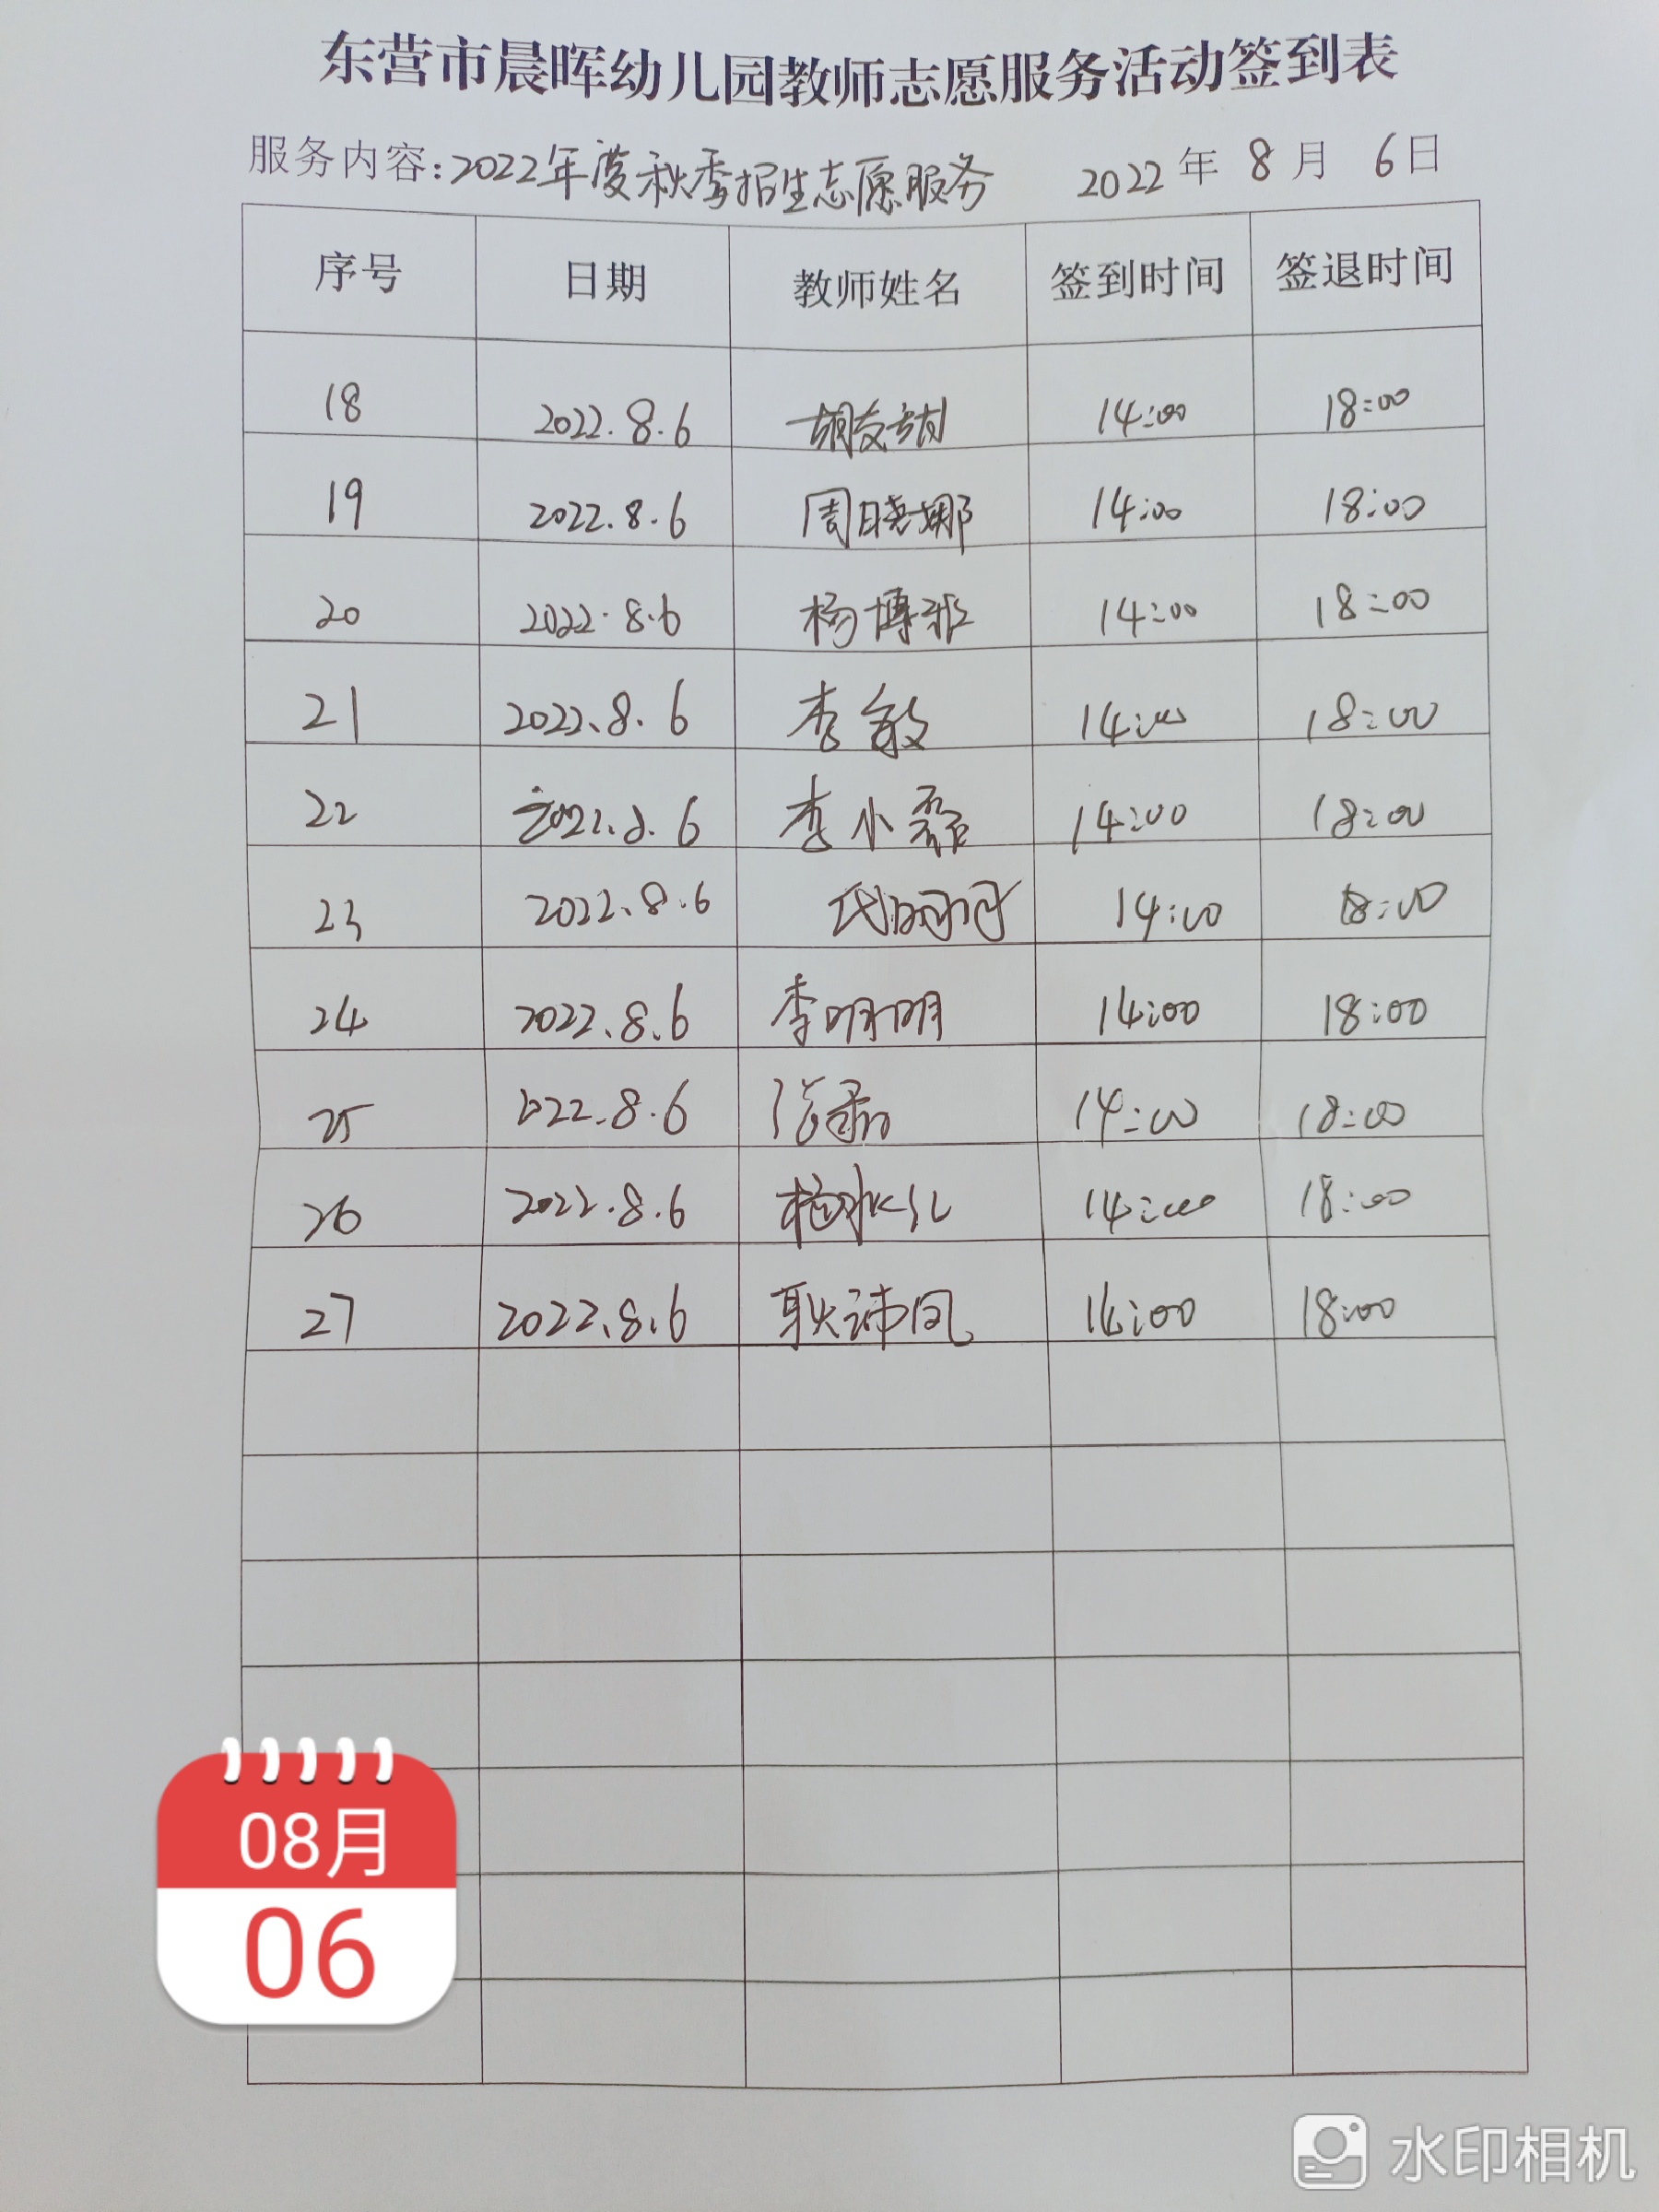 东营市晨晖幼儿园教师志愿服务活动签到表
服务内容:2022年度秋季招生志愿服务 2022年8月6日
序号 日期 教师姓名 签到时间 签退时间
18 2022.8.6 14:00 18:00
19 2022.8.6 周晓娜 14:00 18:00
20 2022.8.6 杨博雅 14:00 18:00
21 2022.8.6 李敏 14:00 18:00
22 2022.8.6 李小磊 14:00 18:00
23 2022.8.6 14:00 18:00
24 2022.8.6 李明明 14:00 18:00
25 2022.8.6 14:00 18:00
26 2022.8.6 14:00 18:00
27 2022.8.6 14:00 18:00
08月
06
水印相机